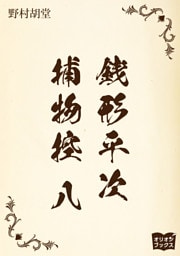 野村胡堂
銭形平次
捕物控 八
オリオン
ブックス